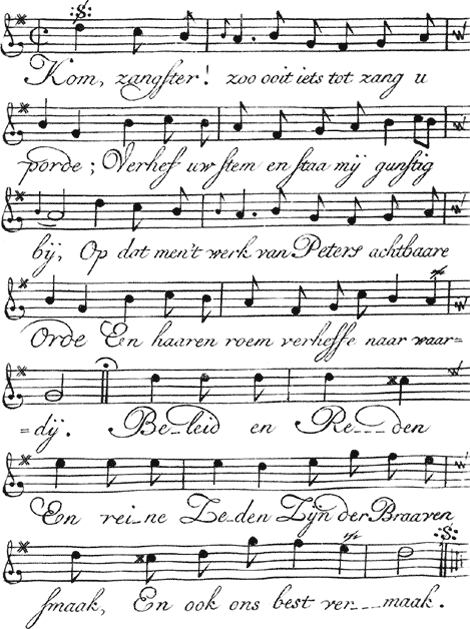 Kom, zangster! zoo ooit iets tot zang u
porde; Verhef uw stem en staa mij gunstig
bij, Op dat men't werk van Peters achtbaare
Orde En haaren roem verheffe naar waar=
=dij. Be_leid en Re___den
En rei_ne Ze_den Zijn der Braaven
smaak, En ook ons best ver___maak.